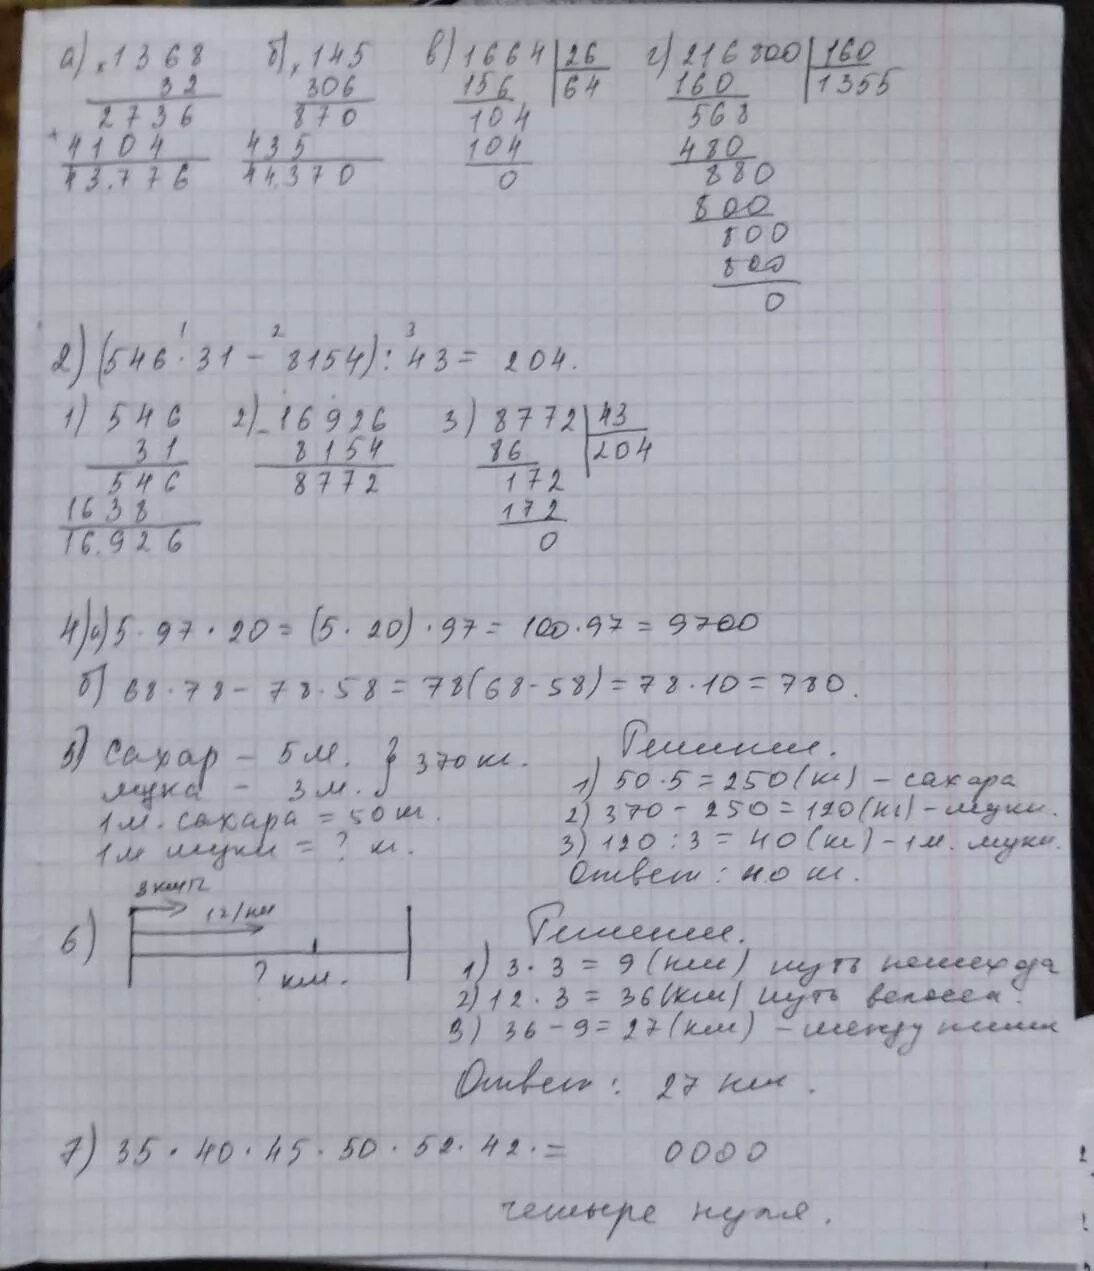 а) × 1368 б) × 145 в) 1664 | 26 г) 216800 | 160
32 306 156 64 160 1355
2736 870 104 568
+ 4104 435 104 480
43.776 44.370 0 880
800
800
800
0
1 2 3
2) (546 · 31 - 8154) : 43 = 204.
1) 546 2) - 16926 3) 8772 | 43
31 8154 86 204
546 8772 172
1638 172
16.926 0
4) а) 5 · 97 · 20 = (5 · 20) · 97 = 100 · 97 = 9700
б) 68 · 78 - 78 · 58 = 78(68 - 58) = 78 · 10 = 780.
5) Сахар - 5 м. } 370 кг. Решение.
мука - 3 м. 1) 50 · 5 = 250 (кг) - сахара
1 м. сахара = 50 кг. 2) 370 - 250 = 120 (кг) - муки.
1 м муки = ? кг. 3) 120 : 3 = 40 (кг) - 1 м. муки.
Ответ: 40 кг.
12/км
6) ? км. Решение.
1) 3 · 3 = 9 (км) путь пешехода
2) 12 · 3 = 36 (км) путь велосеп.
3) 36 - 9 = 27 (км) - между ними
Ответ: 27 км.
7) 35 · 40 · 45 · 50 · 52 · 42 · = 0000
четыре нуля.